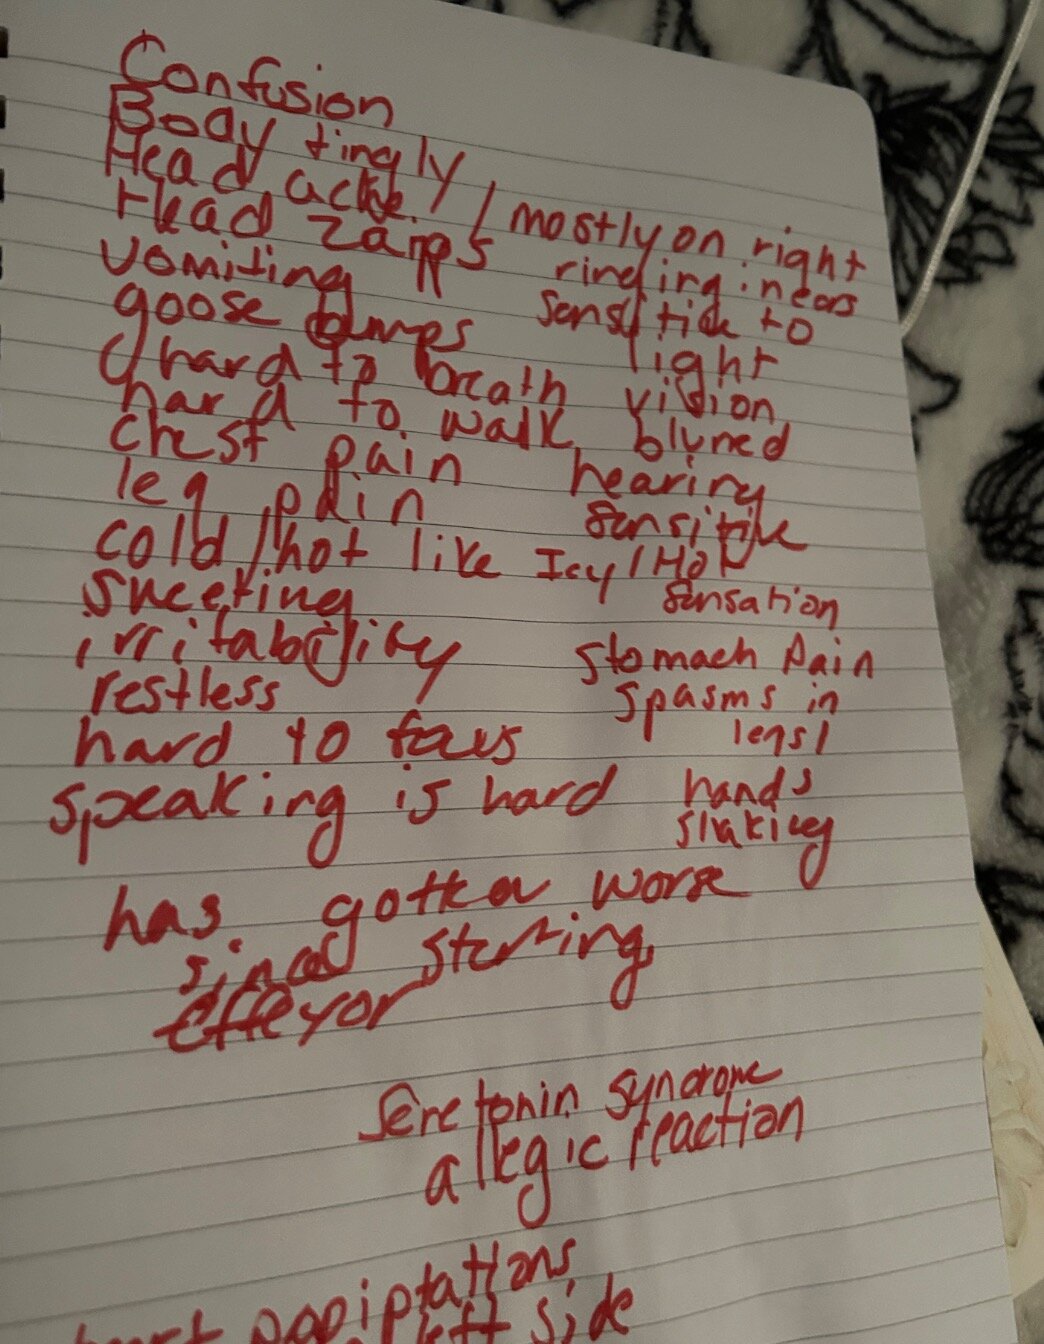 Confusion
Body tingly
Head ache / mostly on right
Head zapps ringing in ears
vomiting sensitive to
goose bumps light
hard to breath vision
hard to walk blurred
chest pain hearing
leg pain sensitive
cold/hot like Icy/Hot
sensation
sweeting
irritability stomach pain
restless spasms in
hard to focus legs/
speaking is hard hands
shaking
has gotten worse
since starting
Effexor
Seretonin syndrome
allegic reaction
heart papiptations
left side